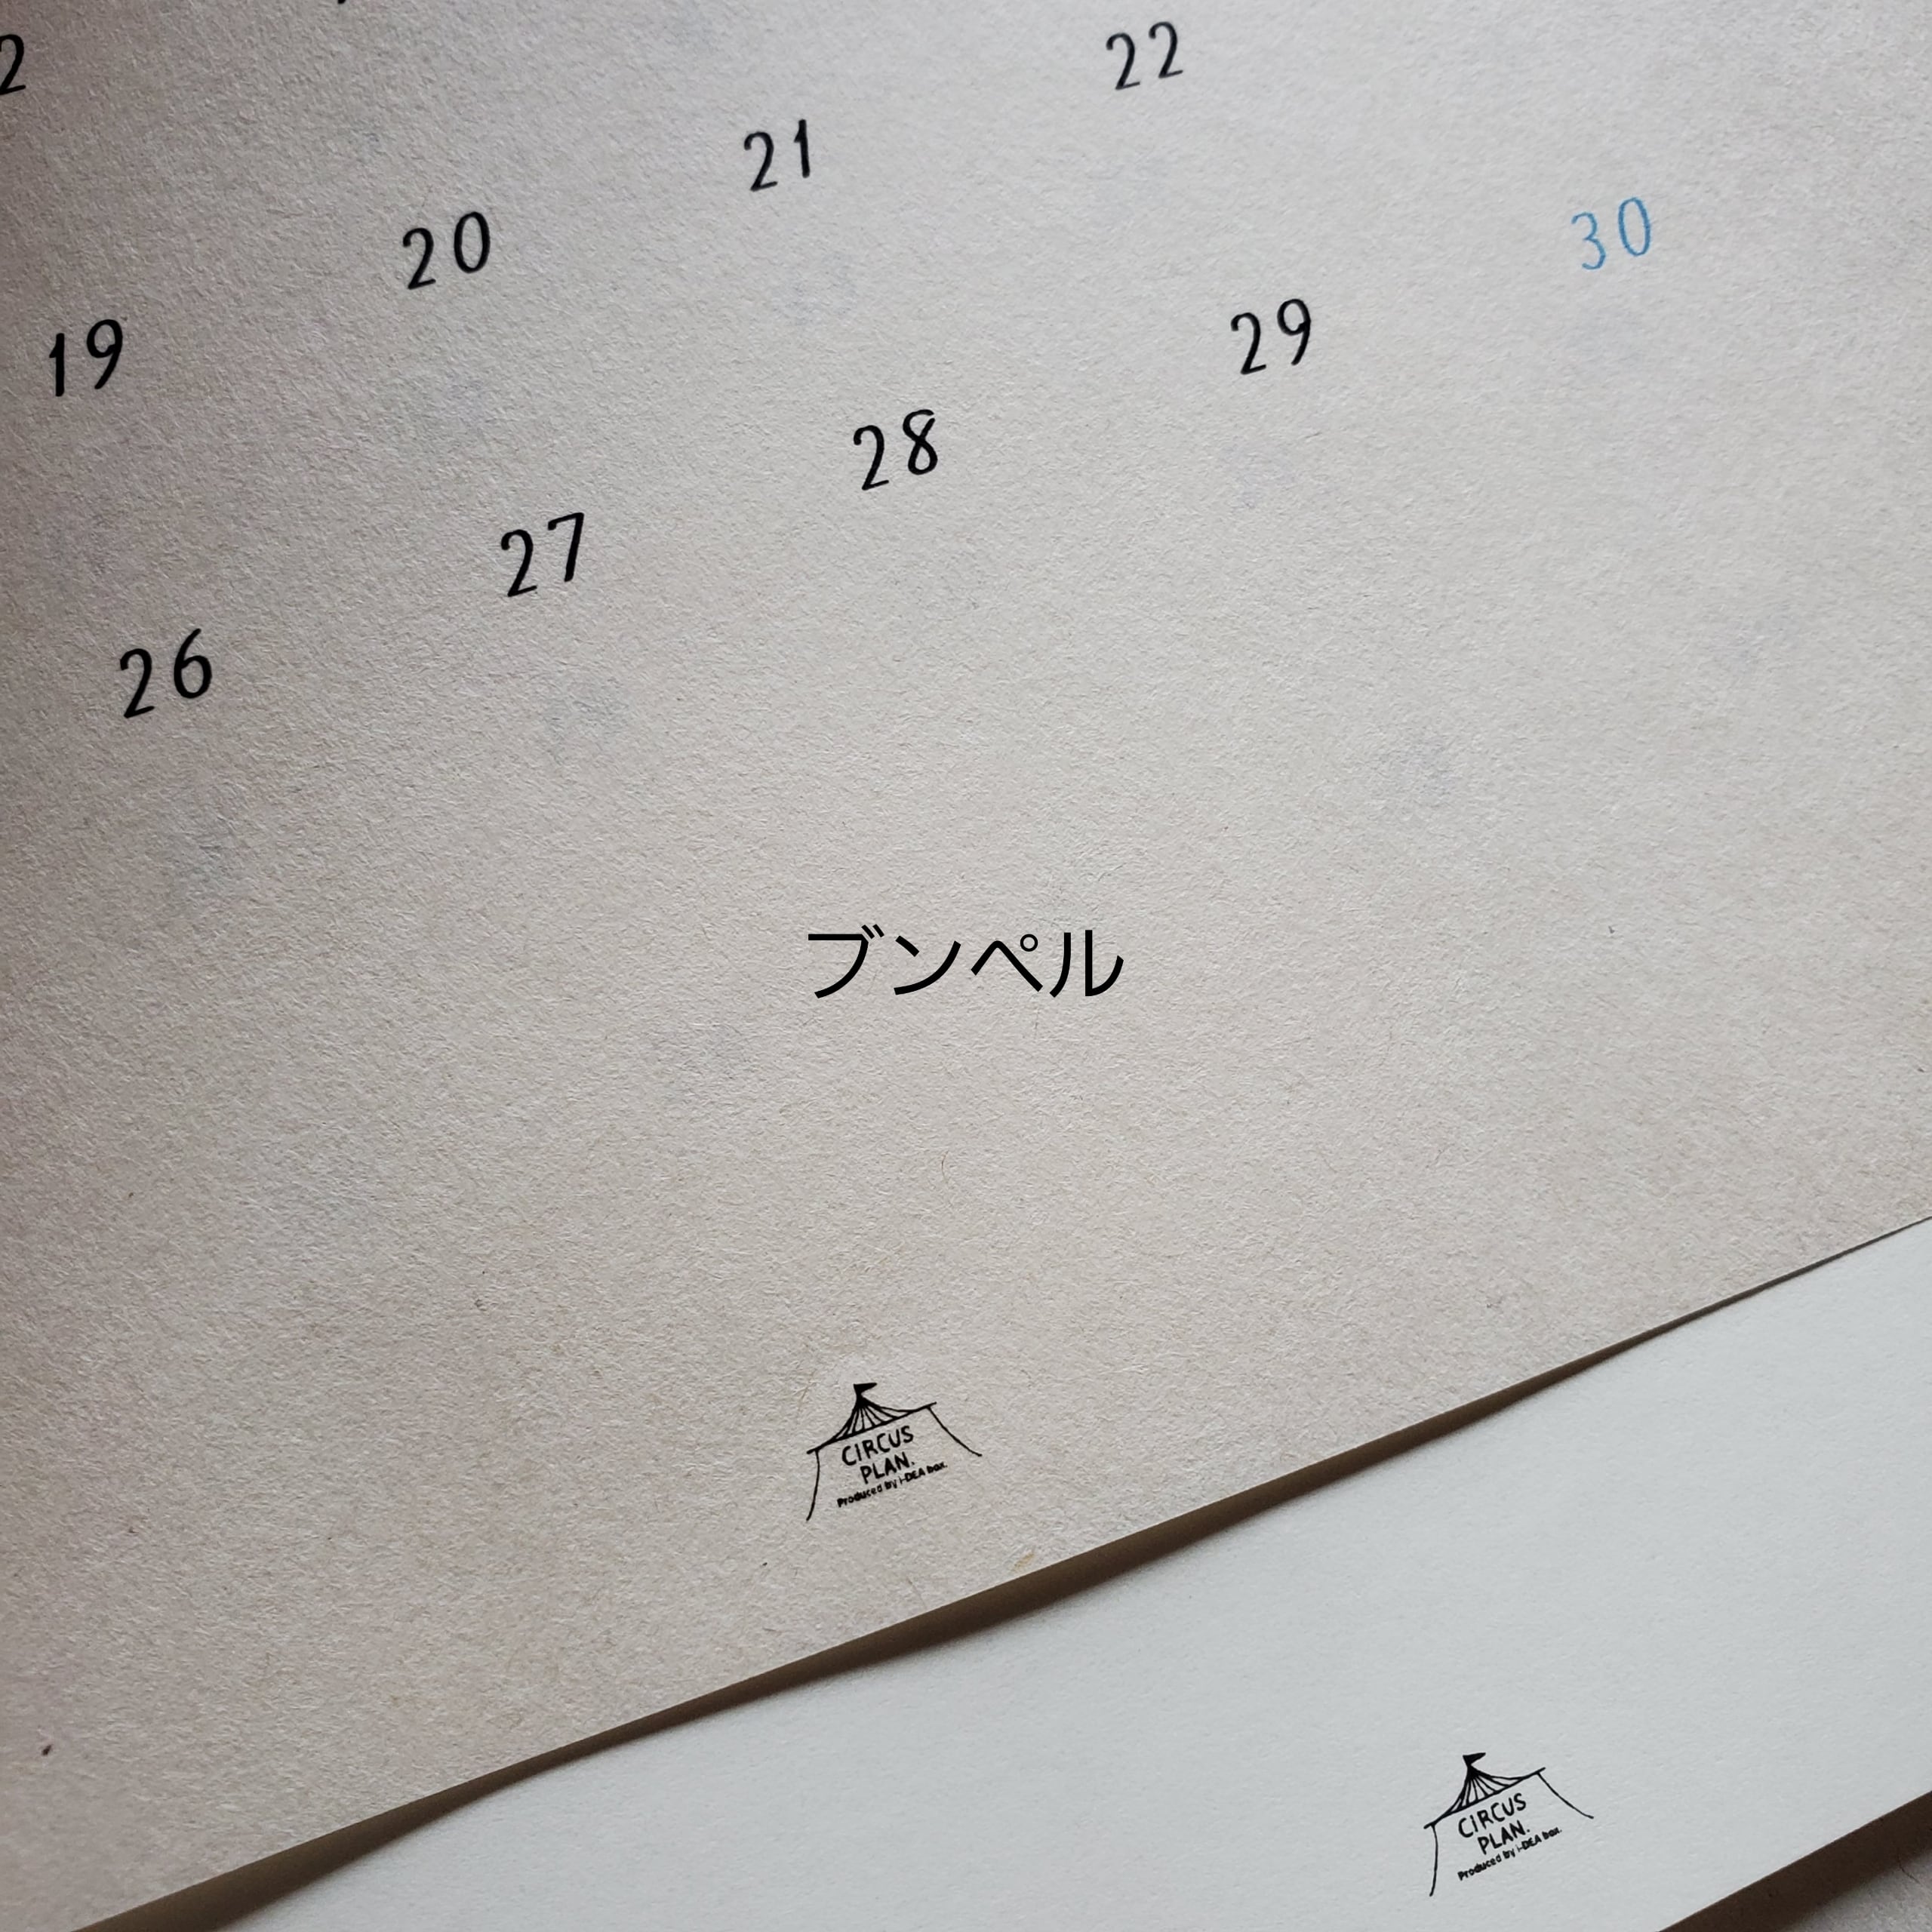 22
21
20
30
19
29
28
27
26
ブンペル
CIRCUS
PLAN.
Produced by i-DEA box.
CIRCUS
PLAN.
Produced by i-DEA box.